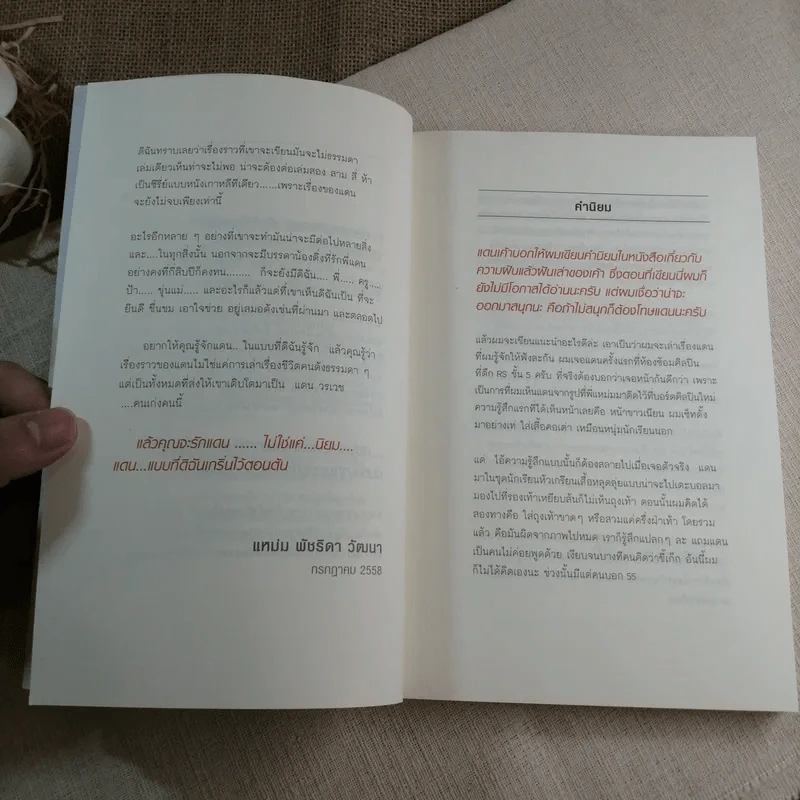 ดิฉันทราบเลยว่าเรื่องราวที่เขาจะเขียนมันจะไม่ธรรมดา
เล่มเดียวเห็นท่าจะไม่พอ น่าจะต้องต่อเล่มสอง สาม สี่ ห้า
เป็นซีรีย์แบบหนังเกาหลีทีเดียว......เพราะเรื่องของแดน
จะยังไม่จบเพียงเท่านี้
อะไรอีกหลาย ๆ อย่างที่เขาจะทำมันน่าจะมีต่อไปหลายสิ่ง
และ....ในทุกสิ่งนั้น นอกจากจะมีบรรดาน้องติ่งที่รักพี่แดน
อย่างคงที่กี่สิบปีก็คงทน........ ก็จะยังมีดิฉัน.... พี่..... ครู....
ป้า..... ขุ่นแม่..... และอะไรก็แล้วแต่ที่เขาเห็นดิฉันเป็น ที่จะ
ยินดี ชื่นชม เอาใจช่วย อยู่เสมอดังเช่นที่ผ่านมา และตลอดไป
อยากให้คุณรู้จักแดน.. ในแบบที่ดิฉันรู้จัก แล้วคุณรู้ว่า
เรื่องราวของแดนไม่ใช่แค่การเล่าเรื่องชีวิตคนดังธรรมดา ๆ
แต่เป็นทั้งหมดที่ส่งให้เขาเติบโตมาเป็น แดน วรเวช
....คนเก่งคนนี้
แล้วคุณจะรักแดน ...... ไม่ใช่แค่...นิยม....
แดน...แบบที่ดิฉันเกริ่นไว้ตอนต้น
แหม่ม พัชริดา วัฒนา
กรกฎาคม 2558
คำนิยม
แดนเค้าบอกให้ผมเขียนคำนิยมในหนังสือเกี่ยวกับ
ความฝันแล้วฝันเล่าของเค้า ซึ่งตอนที่เขียนนี่ผมก็
ยังไม่มีโอกาสได้อ่านนะครับ แต่ผมเชื่อว่าน่าจะ
ออกมาสนุกนะ คือถ้าไม่สนุกก็ต้องโทษแดนนะครับ
แล้วผมจะเขียนแนะนำอะไรดีล่ะ เอาเป็นว่าผมจะเล่าเรื่องแดน
ที่ผมรู้จักให้ฟังละกัน ผมเจอแดนครั้งแรกที่ห้องซ้อมศิลปิน
ที่ตึก RS ชั้น 5 ครับ ที่จริงต้องบอกว่าเจอหน้ากันดีกว่า เพราะ
เป็นการที่ผมเห็นแดนจากรูปที่พี่แหม่มมาติดไว้ที่บอร์ดศิลปินใหม่
ความรู้สึกแรกที่ได้เห็นหน้าเลยคือ หน้าขาวเนียน ผมเซ็ทตั้ง
มาอย่างเท่ ใส่เสื้อคอเต่า เหมือนหนุ่มนักเรียนนอก
แต่ ไอ้ความรู้สึกแบบนั้นก็ต้องสลายไปเมื่อเจอตัวจริง แดน
มาในชุดนักเรียนหัวเกรียนเสื้อหลุดลุ่ยแบบน่าจะไปเตะบอลมา
มองไปที่รองเท้าเหยียบส้นก็ไม่เห็นถุงเท้า ตอนนั้นผมคิดได้
สองทางคือ ใส่ถุงเท้าขาดๆ หรือสวมแค่ครึ่งฝ่าเท้า โดยรวม
แล้ว คือมันผิดจากภาพไปหมด เราก็รู้สึกแปลกๆ ละ แถมแดน
เป็นคนไม่ค่อยพูดด้วย เงียบจนบางทีคนคิดว่าขี้เก๊ก อันนี้ผม
ก็ไม่ได้คิดเองนะ ช่วงนั้นมีแต่คนบอก 55